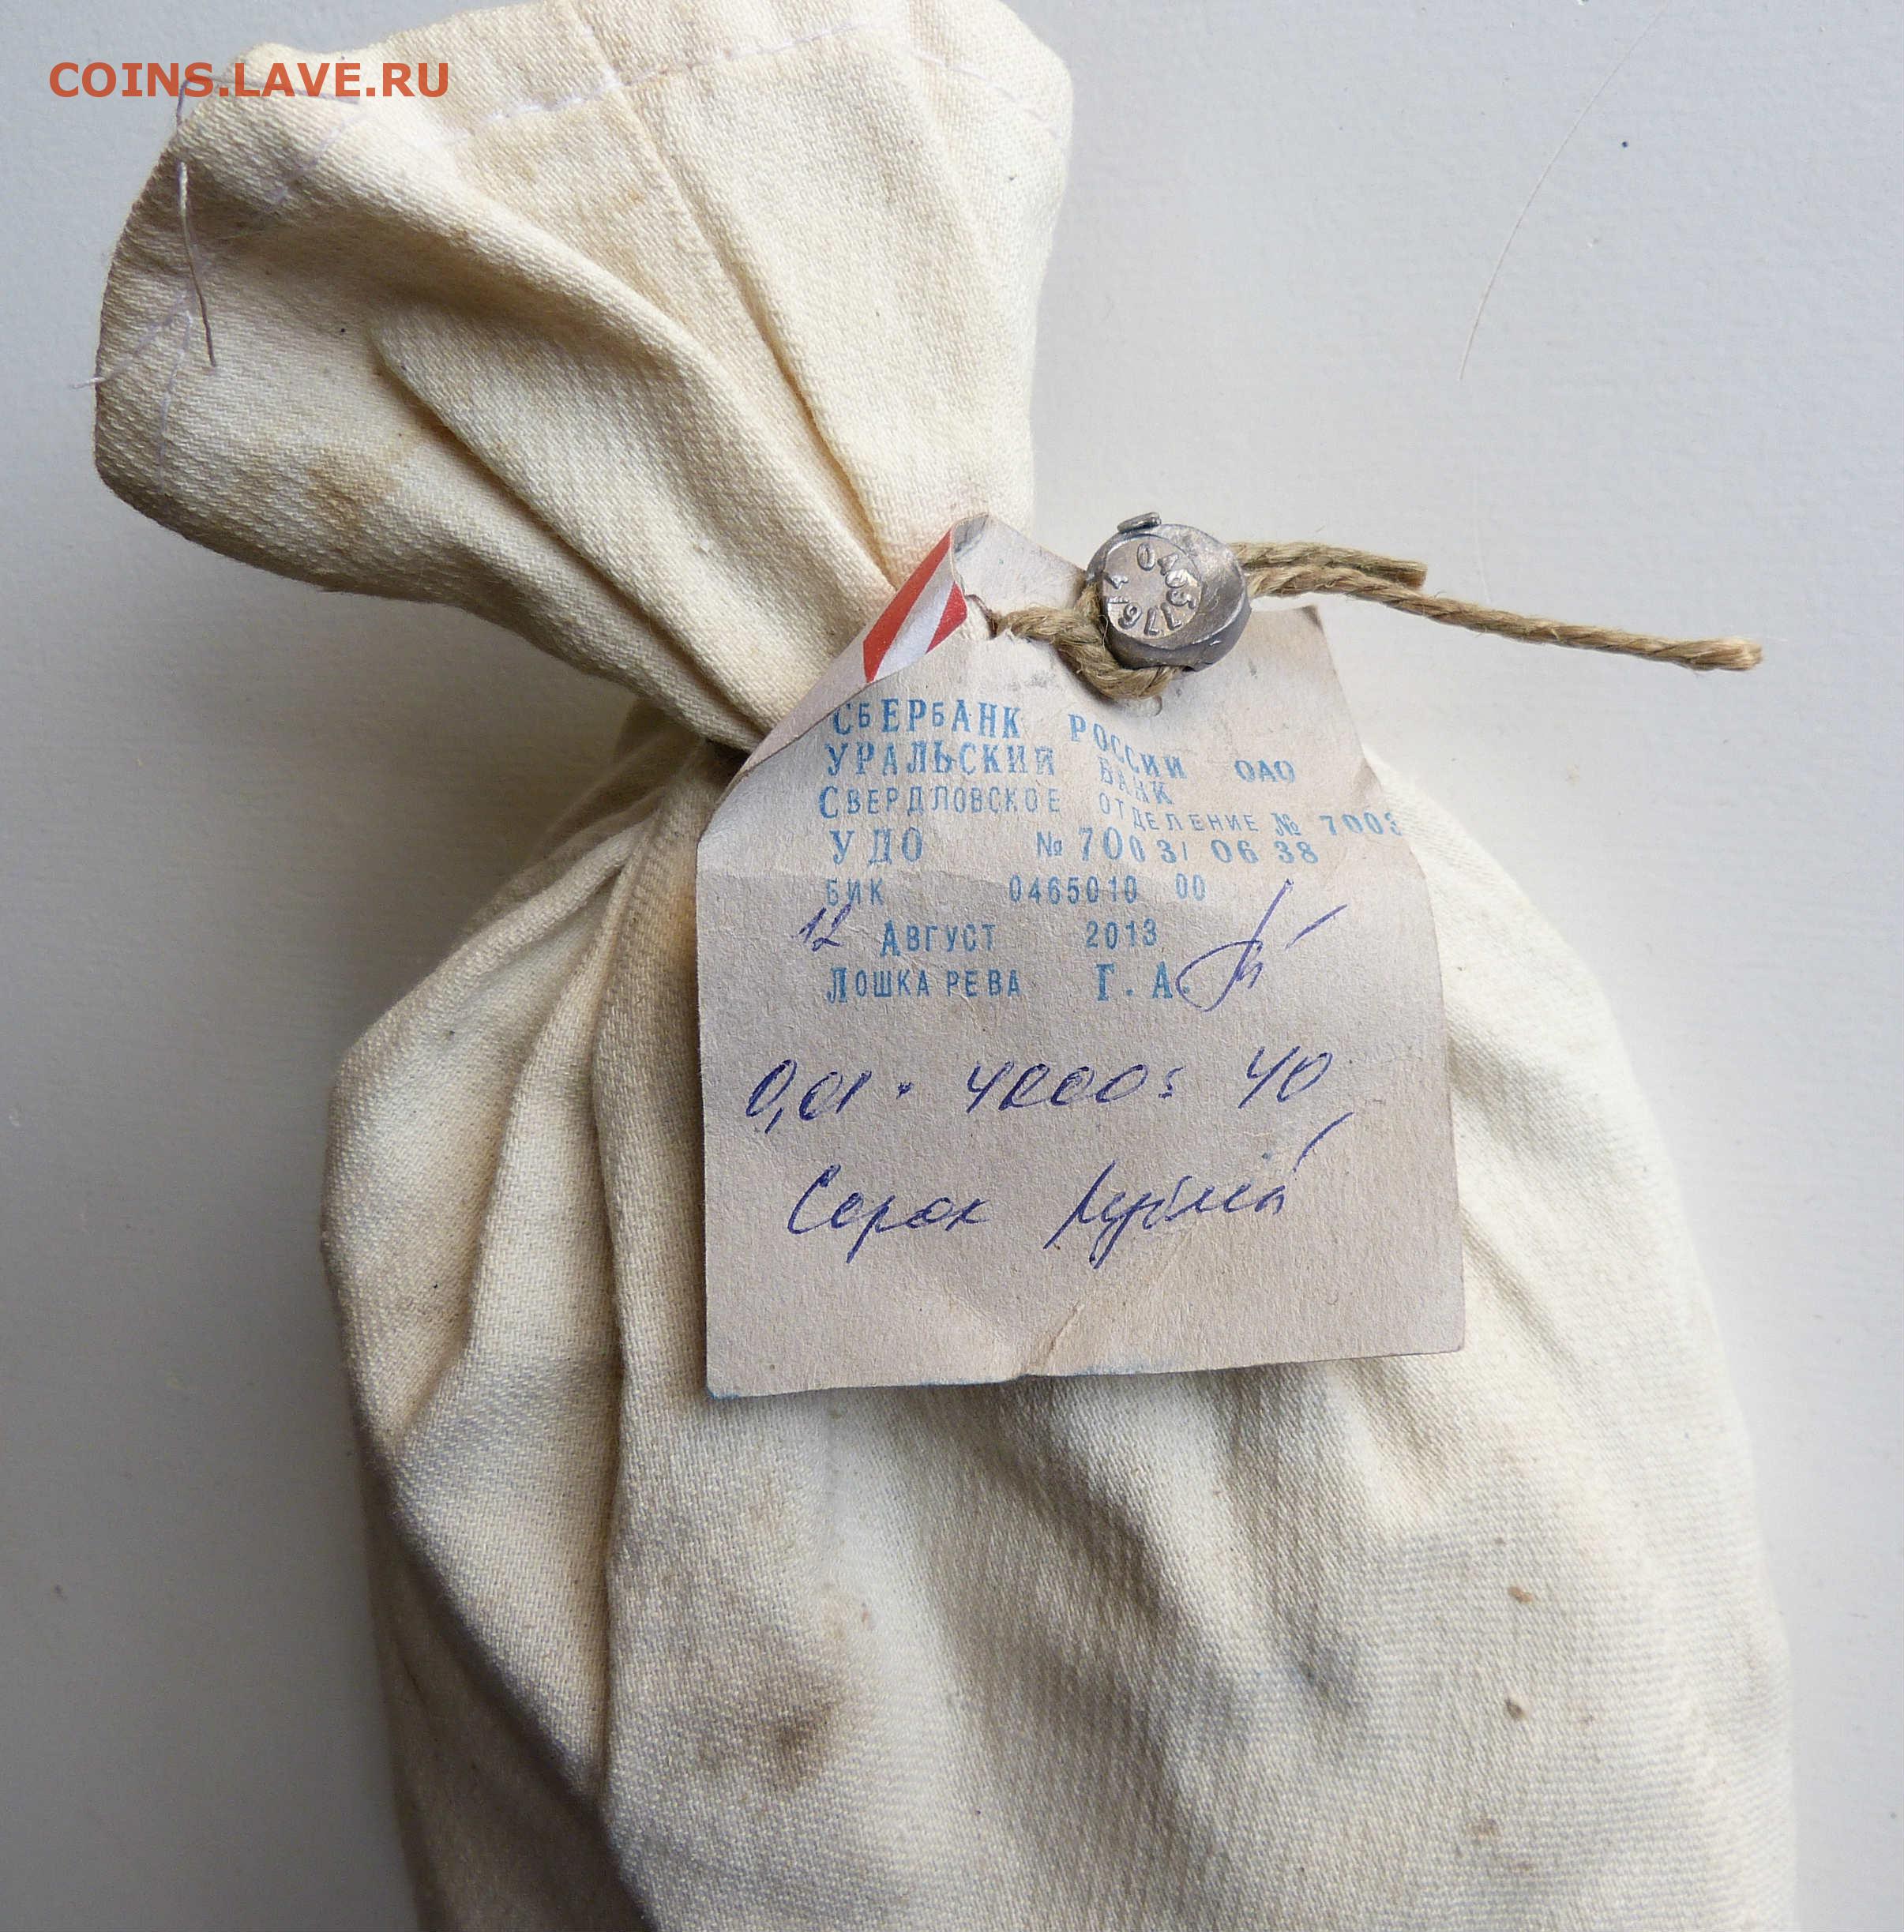 COINS.LAVE.RU
СбЕРбАНК РОССИИ ОАО
УРАЛЬСКИЙ БАНК
СВЕРДЛОВСКОЕ ОТДЕЛЕНИЕ № 7003
УДО № 7003/0638
БИК 0465010 00
12 АВГУСТ 2013
ЛОШКАРЕВА Г. А.
0,01 · 4000 = 40
Сорок рублей